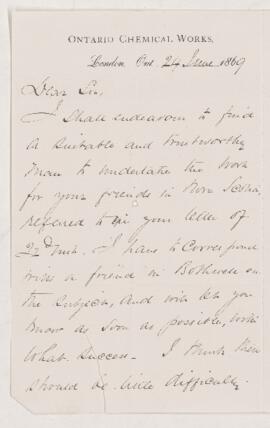 ONTARIO CHEMICAL WORKS,
London Ont 24 June 1869
Dear Sir,
I shall endeavour to find
a suitable and trustworthy
man to undertake the work
for your friends in Nova Scotia,
referred to in your letter of
22d Inst. I have to correspond
with a friend in Bothwell on
the subject, and will let you
know as soon as possible, with
what success - I think there
should be little difficulty.